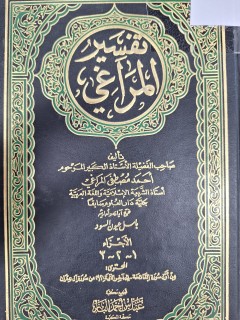 تفسير
المراغي
تأليف
صاحب الفضيلة الأستاذ الكبير المرحوم
أحمد مصطفى المراغي
أستاذ الشريعة الإسلامية واللغة العربية
بكلية دار العلوم سابقا
خرج آياته وأحاديثه
باسل عيون السود
الأجزاء
١ - ٢ - ٣
المحتوى: